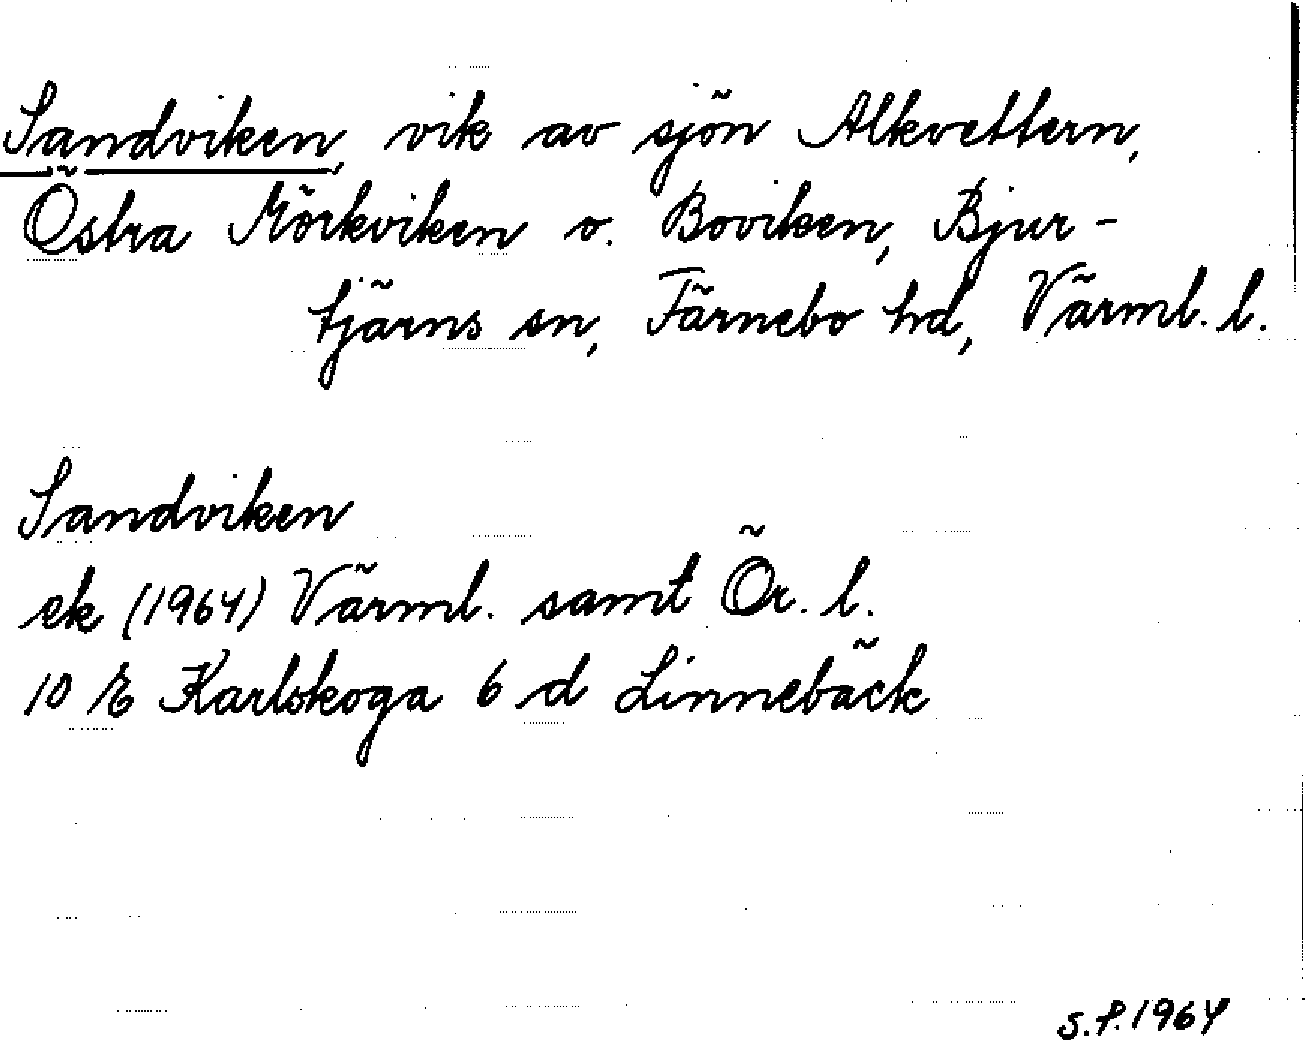 Sandviken, vik av sjön Alkvettern,
Östra Mörkviken o. Boviken, Bjur-
tjärns sn, Färnebo hd, Värml. l.
Sandviken
ek (1964) Värml. samt Ör. l.
10 E Karlskoga 6 d Linnebäck
S.P. 1964